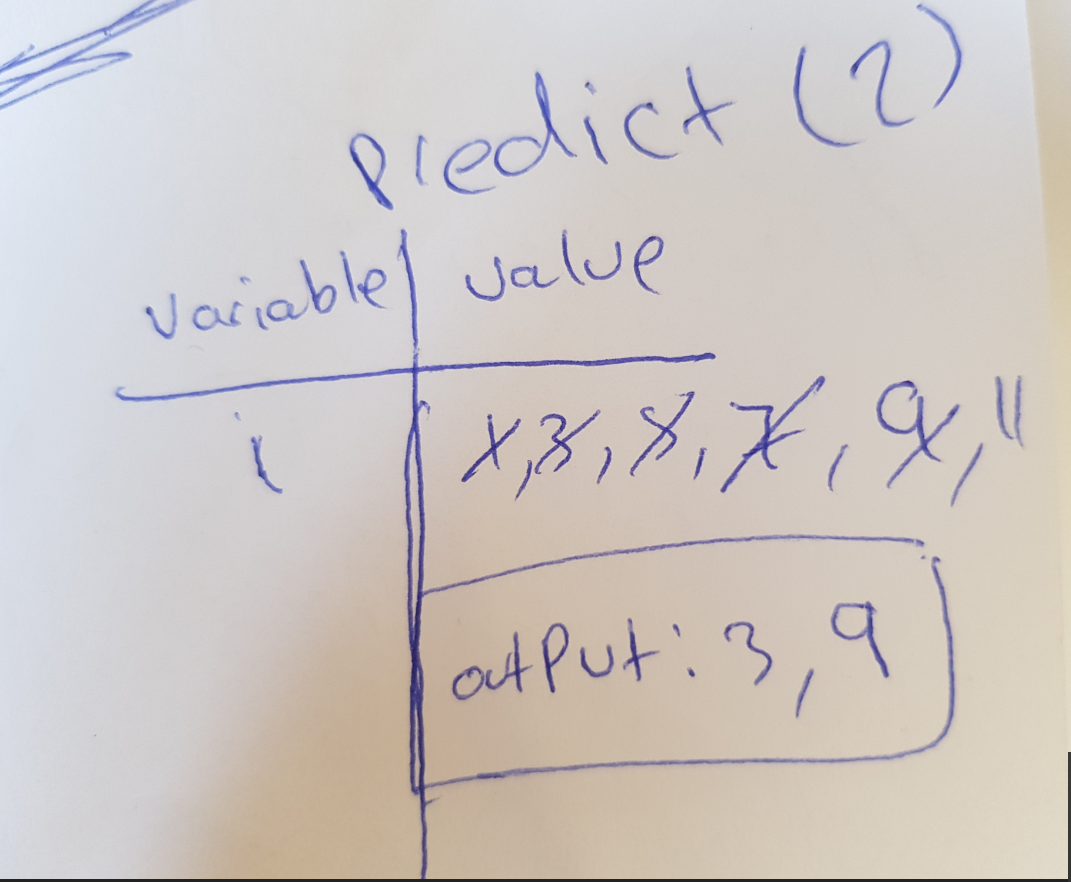 Predict (2)
variable value
i 1, 3, 5, 7, 9, 11
output: 3, 9